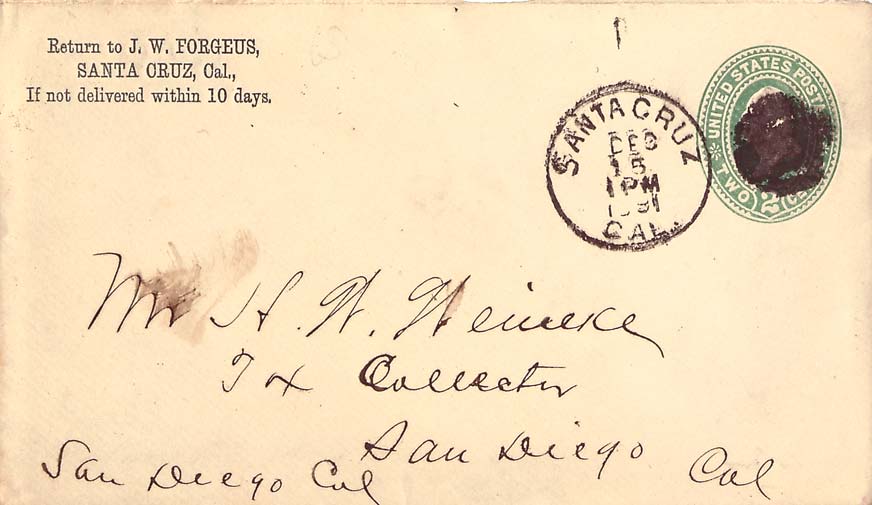 Return to J. W. FORGEUS,
SANTA CRUZ, Cal.,
If not delivered within 10 days.
SANTA CRUZ
DEC
15
1 PM
1891
CAL.
UNITED STATES POSTAGE
TWO 2 CENTS
Mr H. W. Weineke
Tx Collector
San Diego
San Diego Cal
Cal